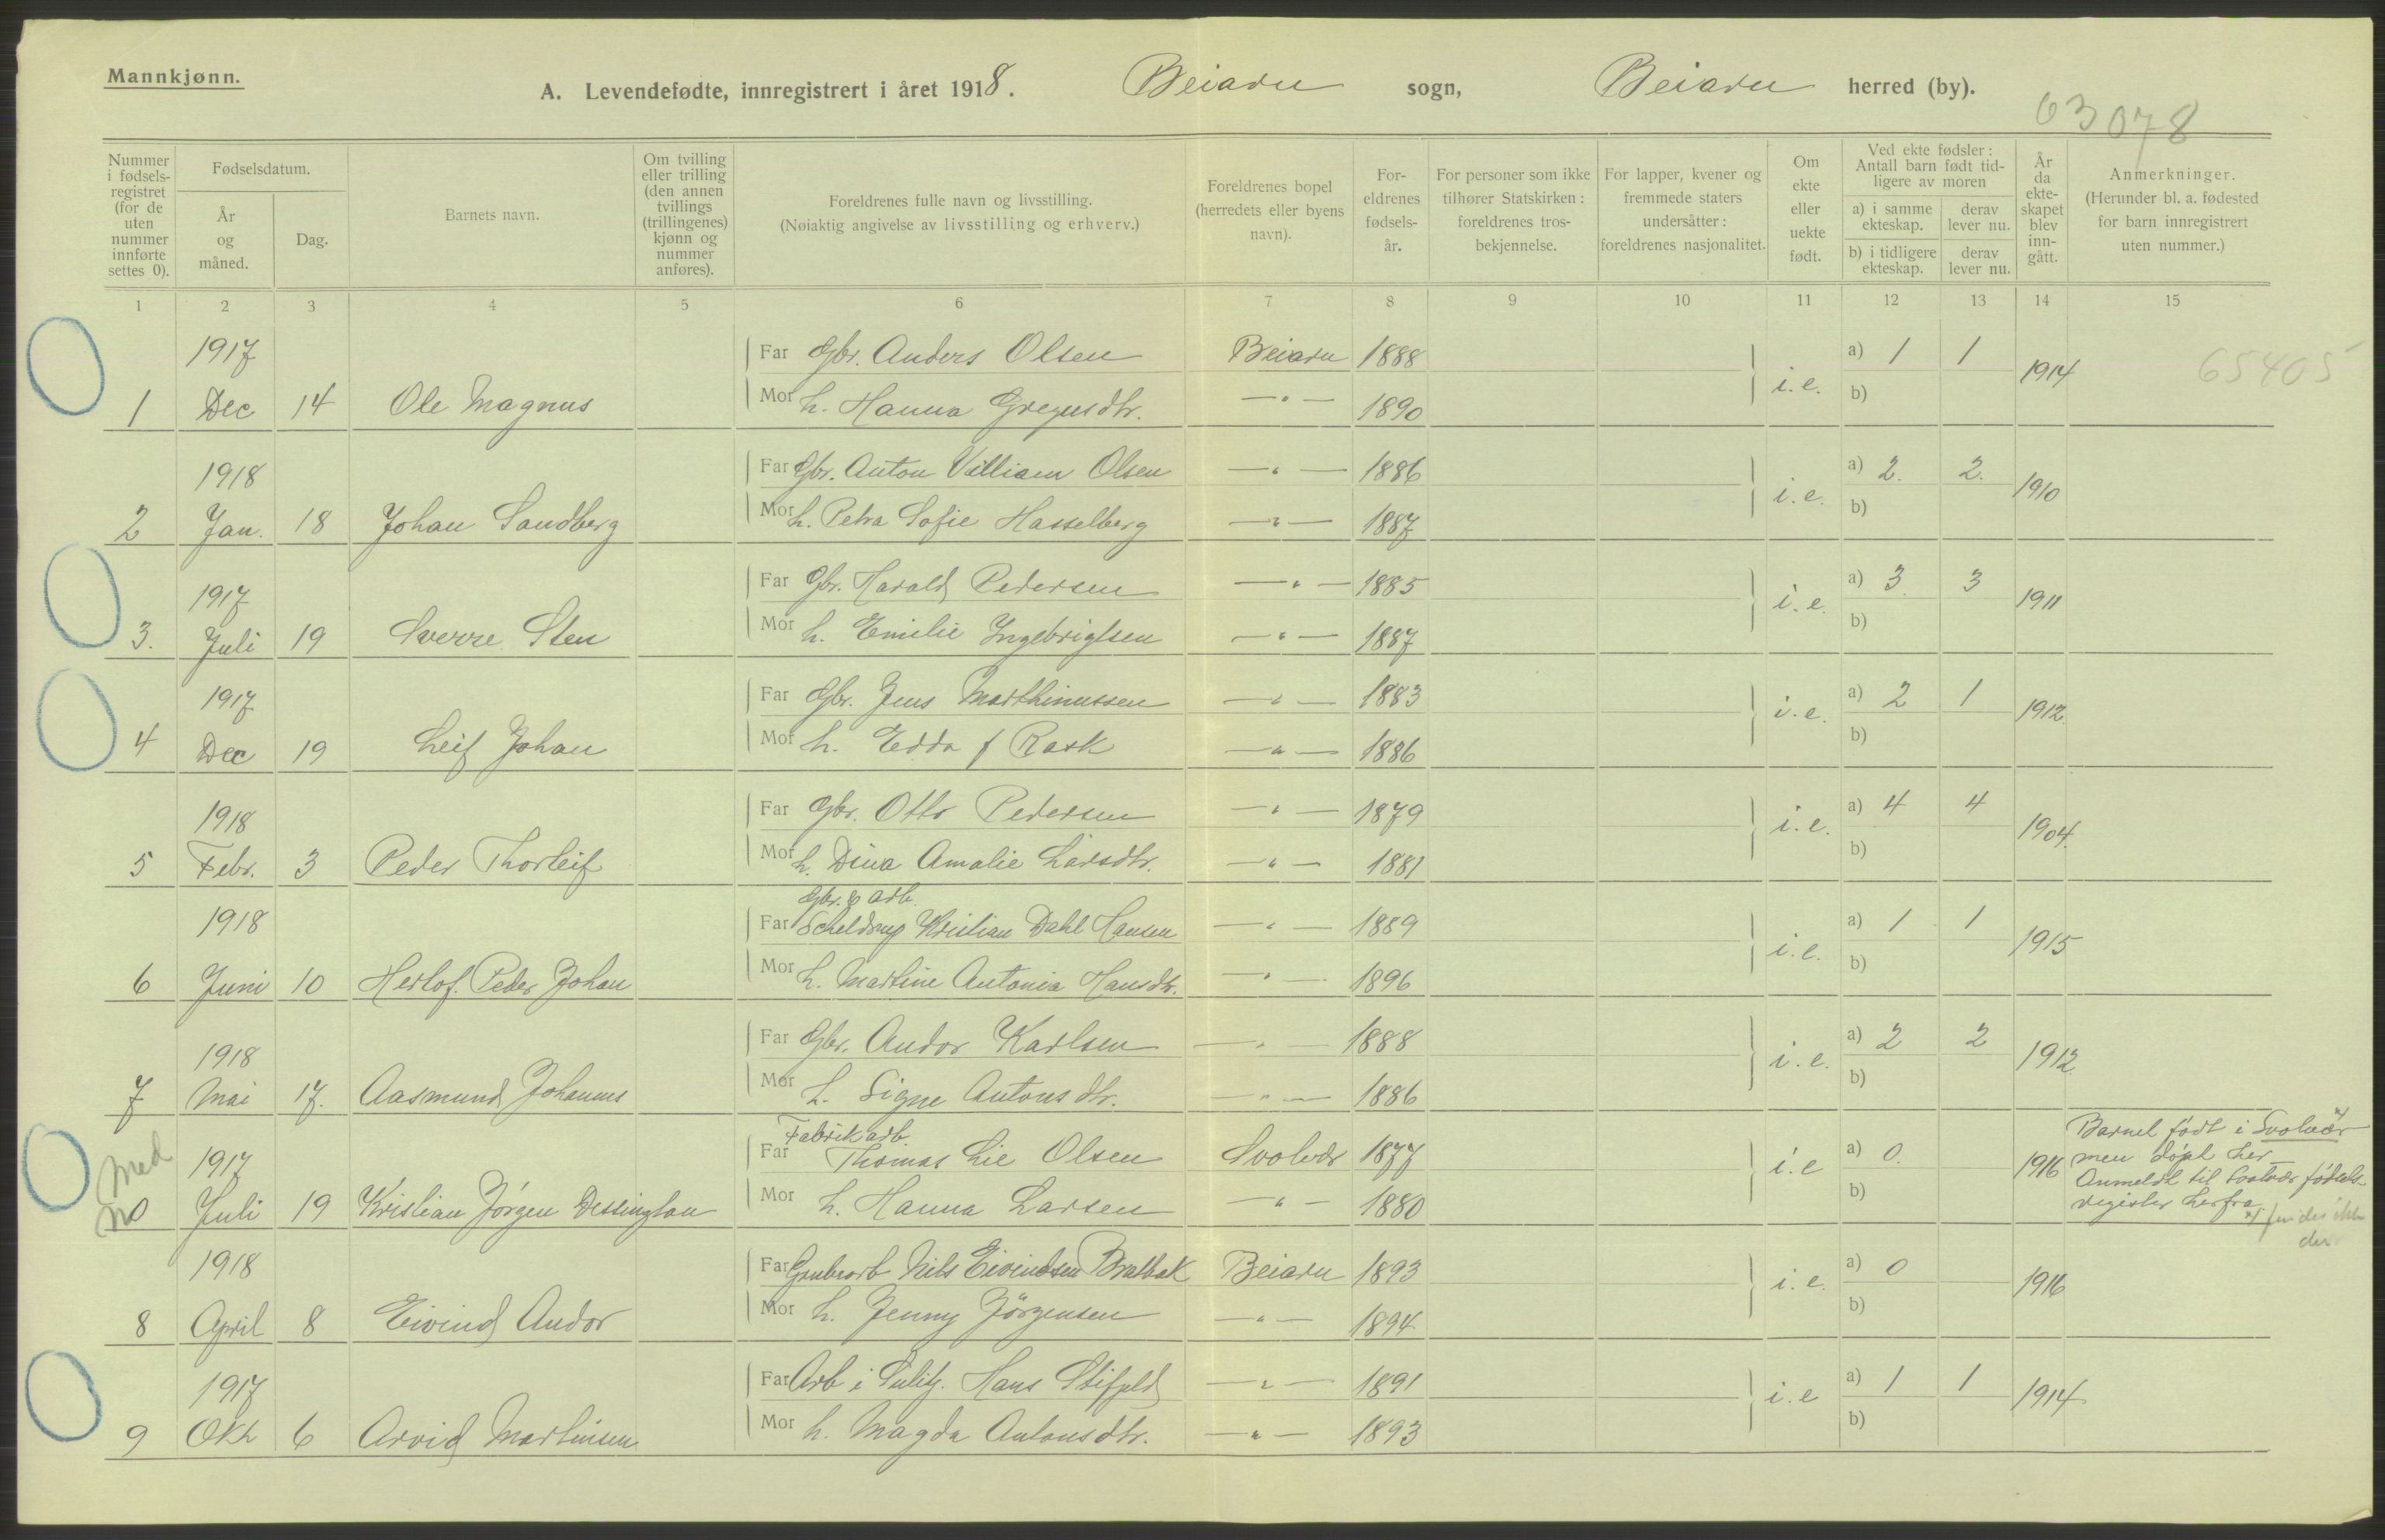 Mannkjønn.
A. Levendefødte, innregistrert i året 1918. Beiarn sogn, Beiarn herred (by).
63078
Nummer i fødselsregistret (for de uten nummer innførte settes 0).
Fødselsdatum.
År og måned.
Dag.
Barnets navn.
Om tvilling eller trilling (den annen tvillings (trillingenes) kjønn og nummer anføres).
Foreldrenes fulle navn og livsstilling.
(Nøiaktig angivelse av livsstilling og erhverv.)
Foreldrenes bopel (herredets eller byens navn).
Foreldrenes fødselsår.
For personer som ikke tilhører Statskirken: foreldrenes trosbekjennelse.
For lapper, kvener og fremmede staters undersåtter: foreldrenes nasjonalitet.
Om ekte eller uekte født.
Ved ekte fødsler: Antall barn født tidligere av moren
a) i samme ekteskap.
derav lever nu.
b) i tidligere ekteskap.
derav lever nu.
År da ekteskapet blev inngått.
Anmerkninger.
(Herunder bl. a. fødested for barn innregistrert uten nummer.)
1 2 3 4 5 6 7 8 9 10 11 12 13 14 15
1917
Far Gbr. Anders Olsen Beiarn 1888 a) 1 1
65405
1 Dec 14 Ole Magnus Mor h. Hanna Gregusdtr. —"— 1890 i.e. b) 1914
1918
Far Gbr. Anton Villiam Olsen —"— 1886 a) 2. 2.
2 Jan. 18 Johan Sandberg Mor h. Petra Sofie Hasselberg —"— 1887 i.e. b) 1910
1917
Far Gbr. Harald Pedersen —"— 1885 a) 3. 3
3. Juli 19 Sverre Sten Mor h. Emilie Ingebrigtsen —"— 1887 i.e. b) 1911
1917
Far Gbr. Jens Marthinussen —"— 1883 a) 2 1
4 Dec 19 Leif Johan Mor h. Edda f Rask —"— 1886 i.e. b) 1912.
1918
Far Gbr. Otto Pedersen —"— 1879 a) 4 4
5 Febr. 3 Peder Thorleif Mor h. Dina Amalie Larsdtr. —"— 1881 i.e. b) 1904.
Gbr. & arb.
1918
Far Scheldrup Kristian Dahl Hansen —"— 1889 a) 1 1
6 Juni 10 Herlof. Peder Johan Mor h. Martine Antonia Hansdtr. —"— 1896 i.e. b) 1915
1918
Far Gbr. Andor Karlsen —"— 1888 a) 2 2
7 Mai 17. Aasmund Johannes Mor h. Signe Antonsdtr. —"— 1886 i.e. b) 1912
Fabrikarb.
1917
Far Thomas Lie Olsen Svolvær 1877 a) 0.
Med
no
0 Juli 19 Kristian Jørgen Dessingtan Mor h. Hanna Larsen —"— 1880 i.e b) 1916
Barnet født i Svolvær x)
men døpt her
Anmeldt til Svolvær fødsels-
register herfra
x) ikke
der.
1918
Far Grubearb Nils Eivindsen Bratbak Beiarn 1893 a) 0
8 April 8 Eivind Andor Mor h. Jenny Jørgensen —"— 1894 i.e. b) 1916
1917
Far Arb i Sulitj. Hans Stifjeld —"— 1891 a) 1 1
9 Okt 6 Arvid Martinsen Mor h. Magda Antonsdtr. —"— 1893 i.e b) 1914